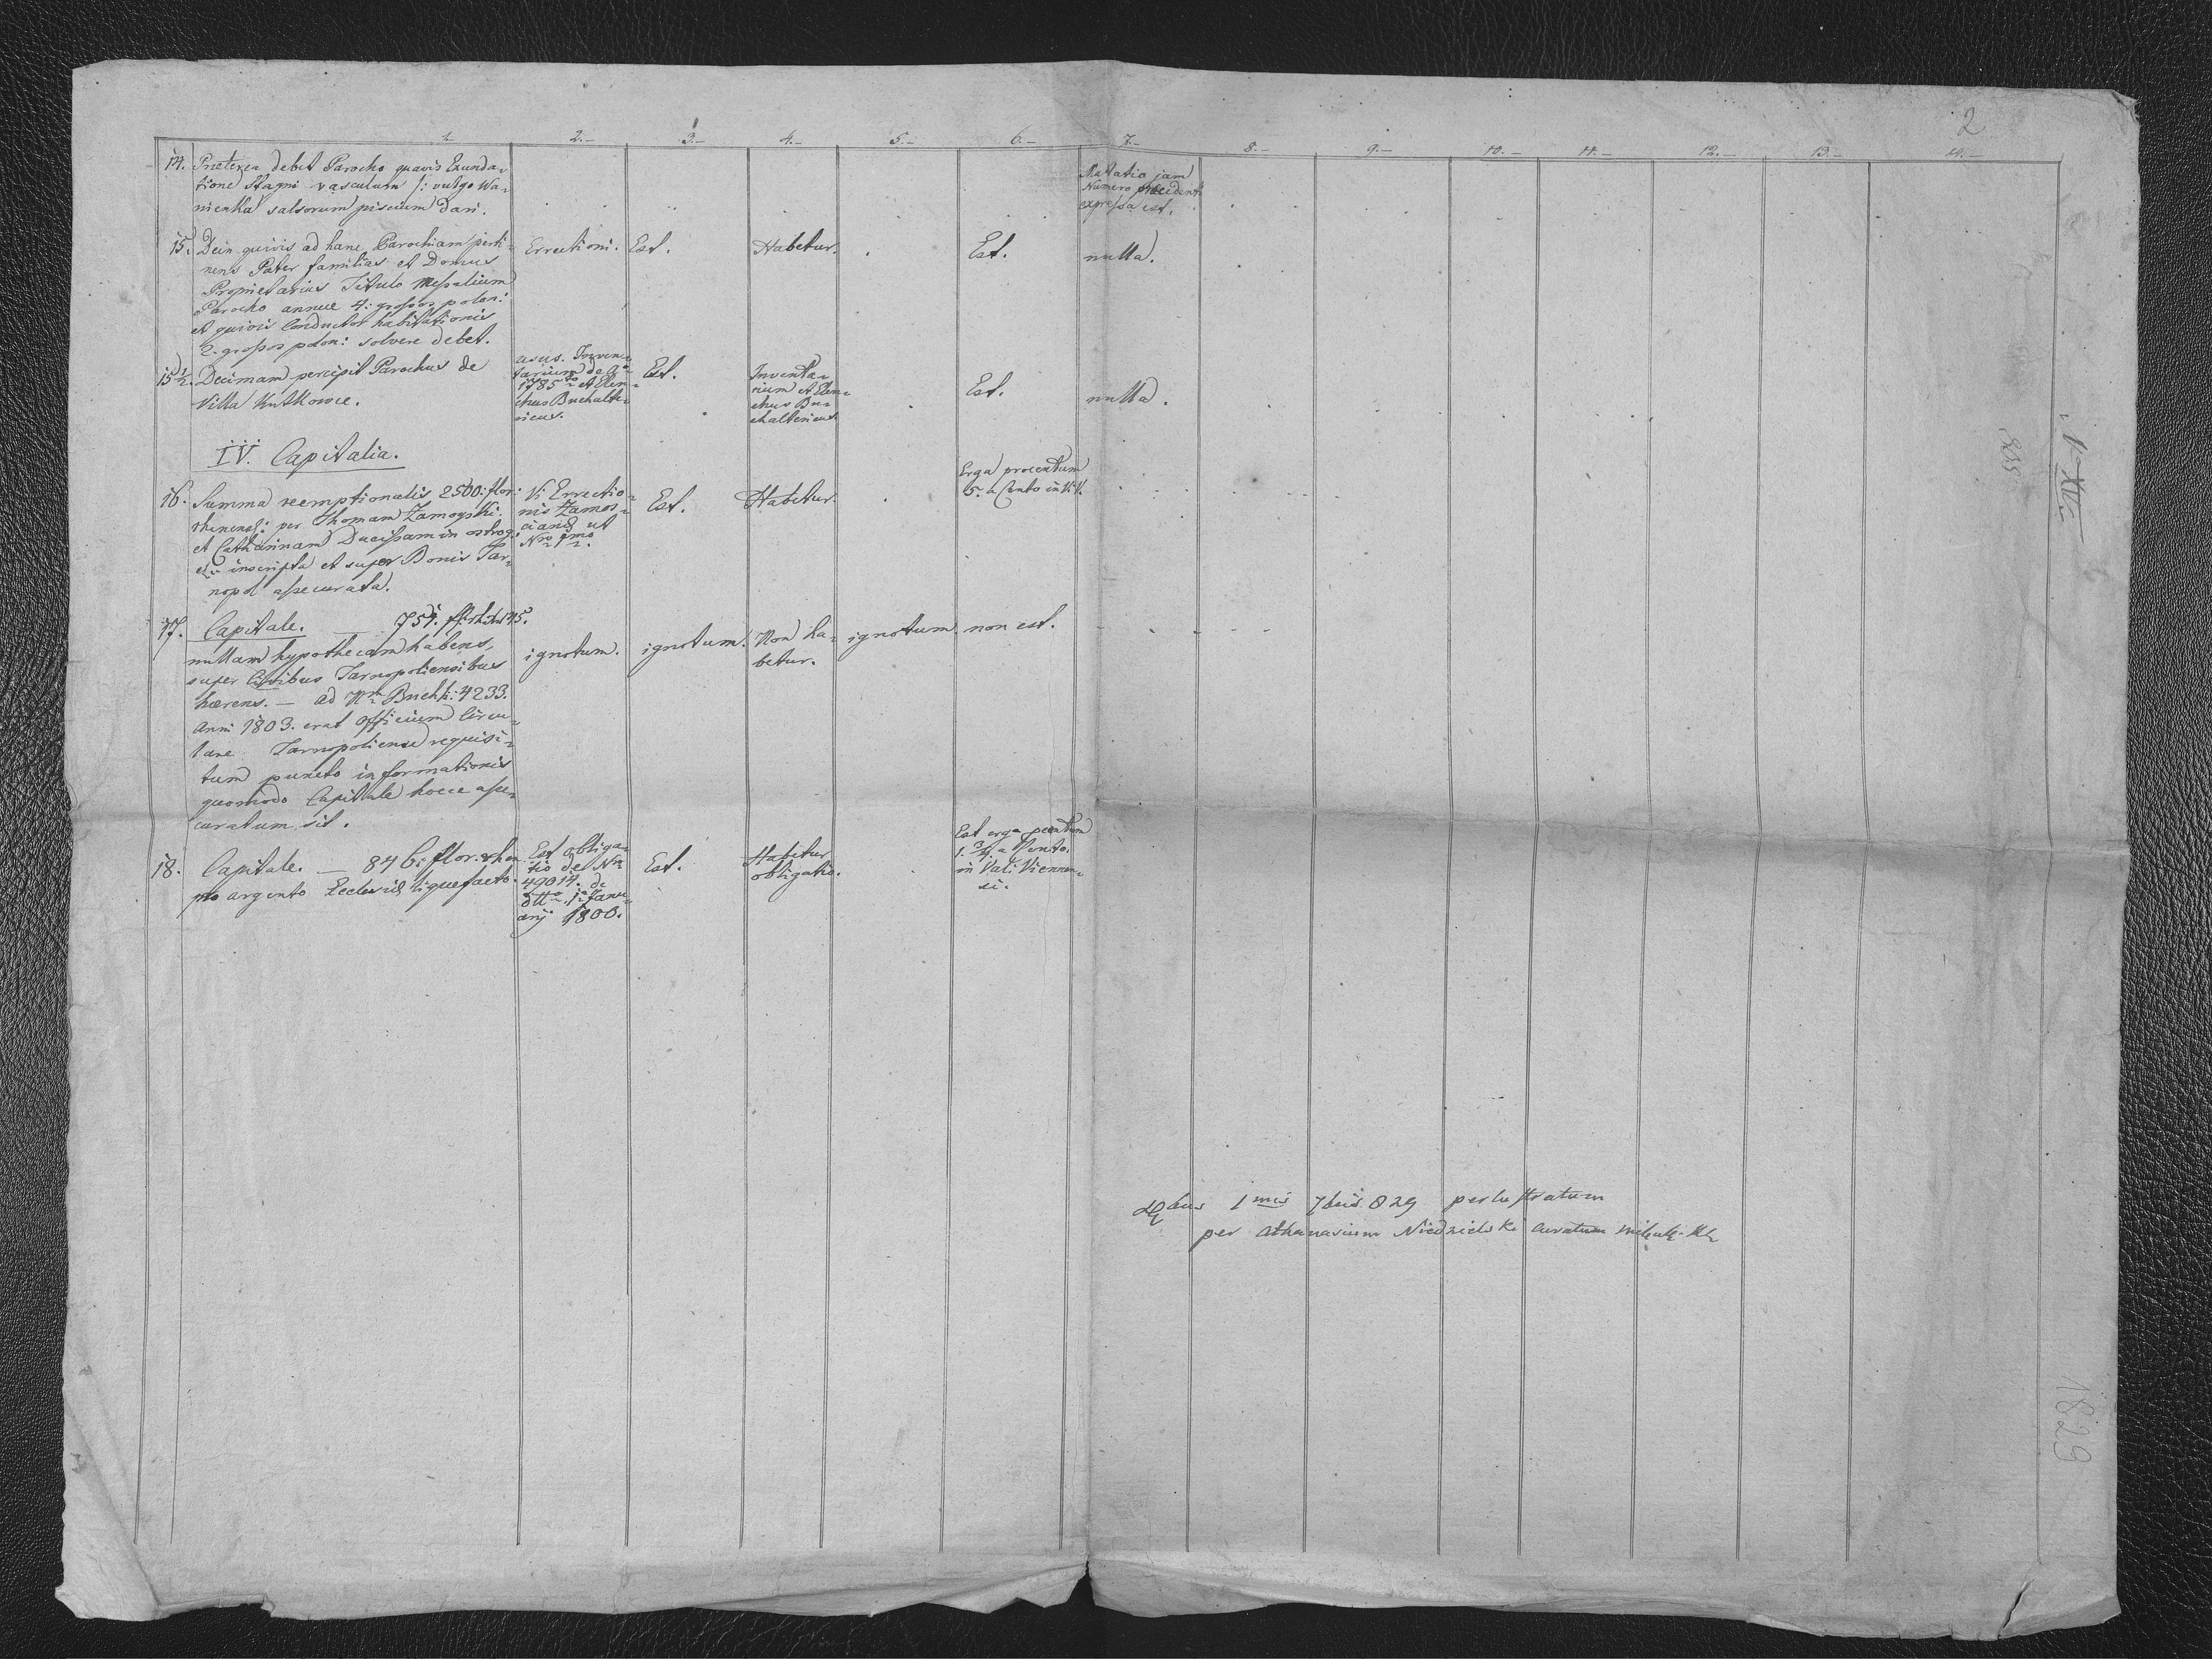 2
1.- 2.- 3.- 4.- 5.- 6.- 7.- 8.- 9.- 10.- 11.- 12.- 13.- 14.-
14. Præterea debet Parocho quavis Exunda-
tione Stagni vasculum /: vulgo Wa-
nienka salsorum piscium dari.
Mutatio jam
Numero præcedenti
expressa est.
15. Dein quivis ad hanc Parochiam perti-
nens Pater familias et Domus
Proprietarius Titulo Messalium
Parocho annue 4: grossos polon:
et quivis Conductor habitationis
2. grossos polon: solvere debet.
Errectioni.
Est.
Habetur.
Est.
nulla.
15½. Decimam percipit Parochus de
Villa Kutkowce.
usus. Inven-
tarium de ao
1785to et Elen-
chus Buchalte-
ricus.
Est.
Inventa-
rium et Elen-
chus Bu-
chaltericus.
Est.
nulla.
IV. Capitalia.
16. Summa reemptionalis 2500: flor:
rhenens: per Thomam Zamoyski
et Catharinam Ducissam in ostrog
inscripta et super Bonis Tar-
nopol assecurata.
Vi Errectio-
nis Zamos-
cianæ ut
Nro 1mo.
Est.
Habetur.
Erga procentum
5. a Cento in V.V.
17. Capitale. — 751.
nullam hypothecam habens,
super Civibus Tarnopoliensibus
hærens. — ad Nrm Buchh: 4233.
Anni 1803. erat officium Circu-
lare Tarnopoliense requisi-
tum puncto informationis
quomodo Capitale hocce asse-
curatum sit.
ignotum.
ignotum.
Non ha-
betur.
ignotum.
non est.
18. Capitale. — 84 flor. rhen
pro argento Ecclesiæ liquefacto.
Est obliga-
tio de Nro
49014. de
dtto 1a Janu-
arj 1800.
Est.
Habetur
obligatio.
Est erga pcentum
1. ¾. a Cento.
in Val: Viennen-
si.
1mis 7bris 829 perlustratum
per Athanasium Niedzielski curatum
No XII
1829